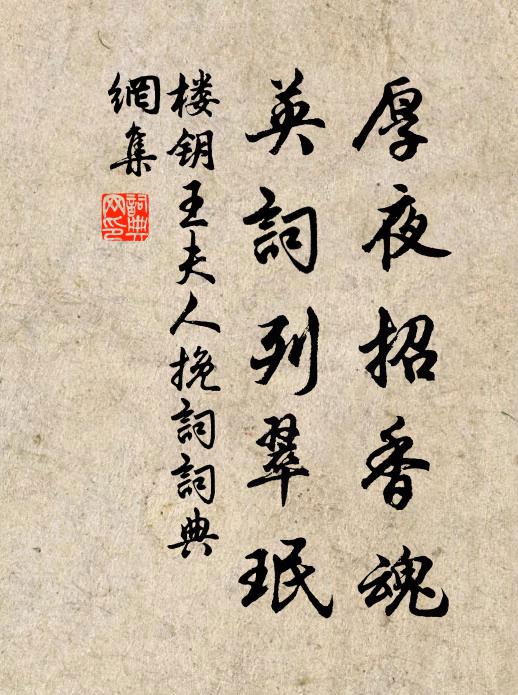 厚夜招香魂
英詞列翠珉
楼钥王夫人挽詞詞典
網集
詞典
网印